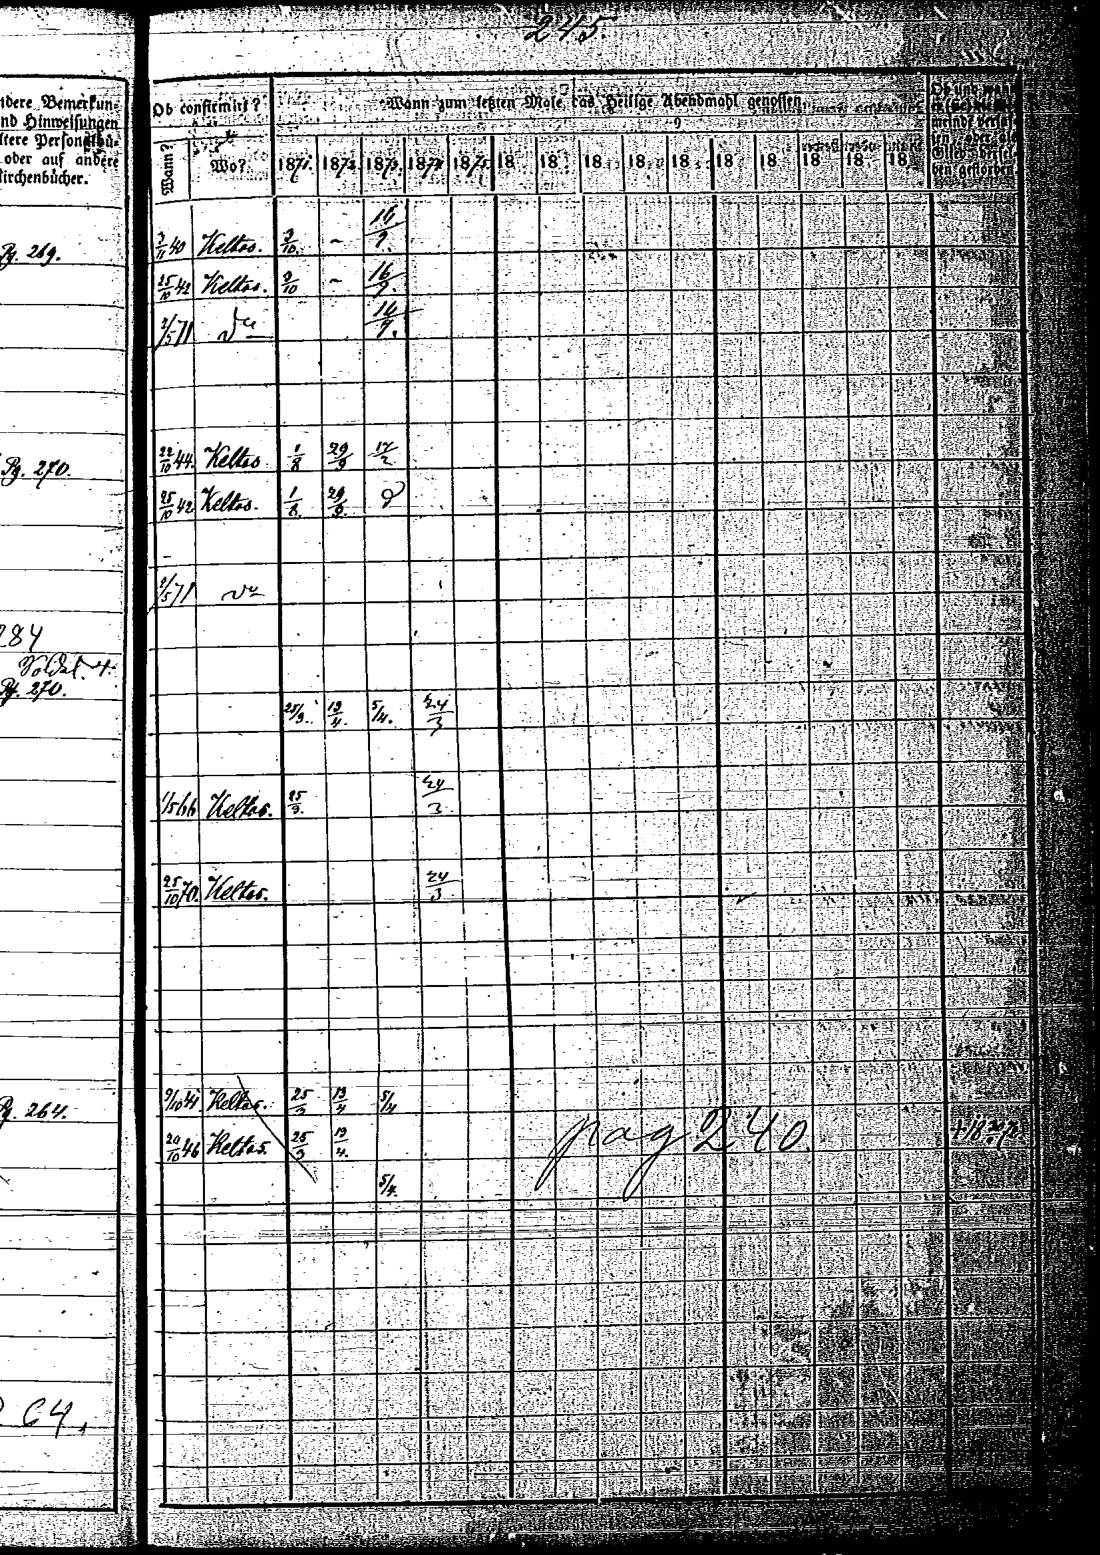 245.
ndere Bemerkun-
nd Hinweisungen
ltere Personalbü-
oder auf andere
irchenbücher.
Ob confirmirt?
Wann? Wo?
Wann zum letzten Male das Heilige Abendmahl genossen.
1871. 1872. 1873. 1874. 1875. 18 18 18 18 18 18 18 18 18 18
Ob und wann
meinde verlas-
sen oder als
Glied dersel-
ben gestorben
16/9.
Pg. 269. 3/11 40 Keltos. 3/10. –
25/10 42 Keltos. 3/10 – 16/9.
2/5 71 16/9.
Pg. 270. 22/10 44. Keltos 1/8 29/9 17/2
25/10 42 Keltos. 1/8. 29/9.
2/5 71
284
Pg. 270.
25/9. 19/4. 5/4. 24/3
1/5 66 Keltos. 25/9. 24/3
25/10 70. Keltos. 24/3
Pg. 264. 9/10 41 Keltos. 25/9 19/4 5/4
20/10 46 Keltos. 25/9 19/4.
pag 240.
5/4.
64.